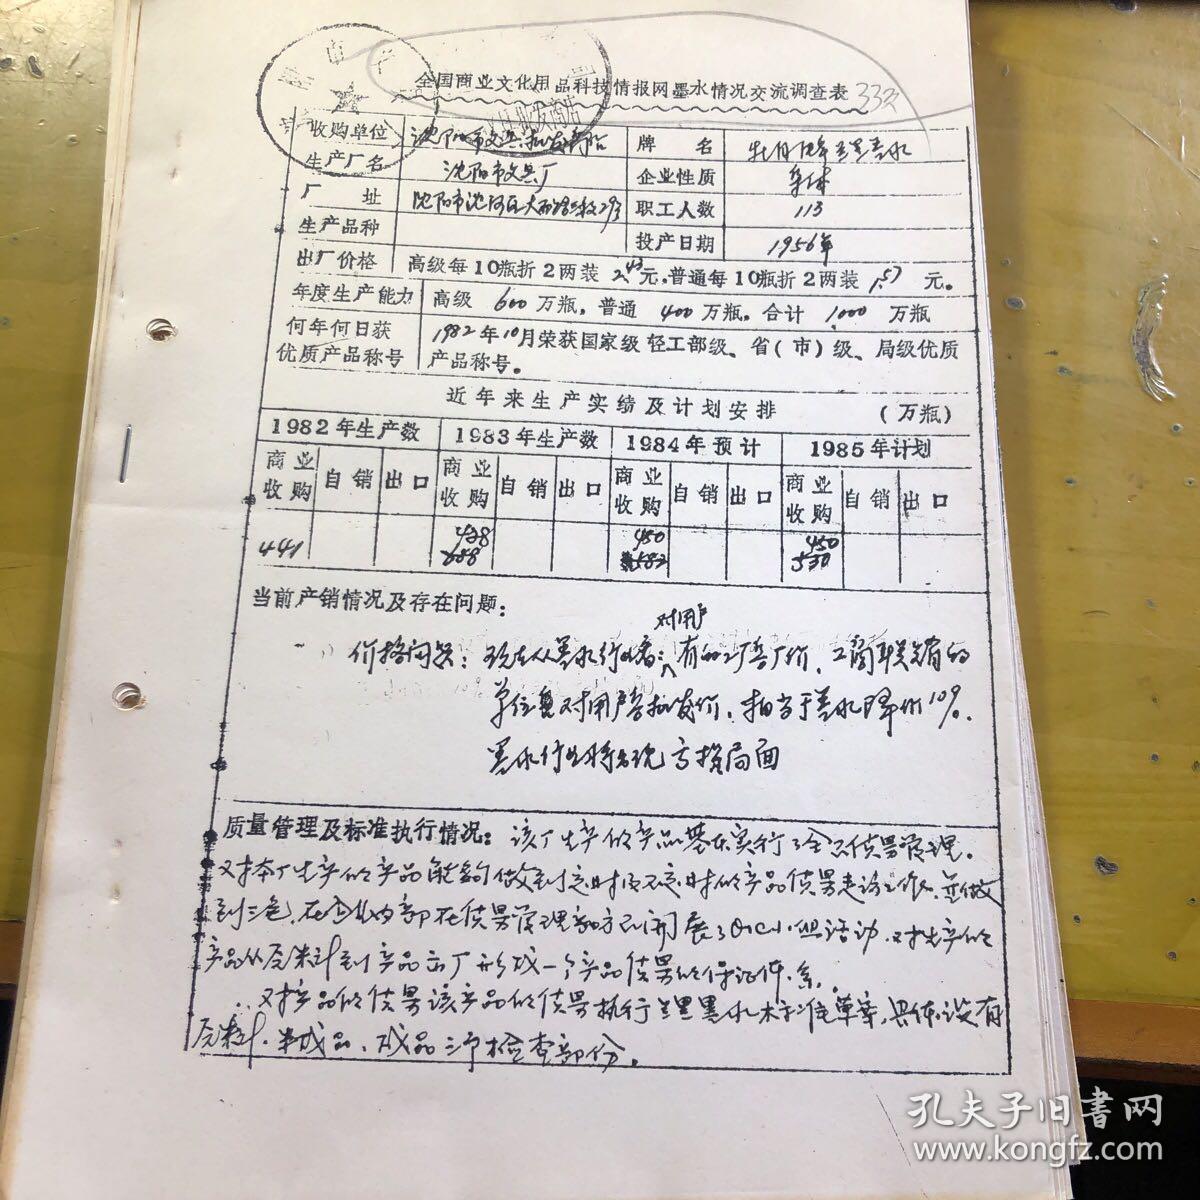 全国商业文化用品科技情报网墨水情况交流调查表 332
收购单位 沈阳市文具批发商店 牌 名 牡丹牌兰黑墨水
生产厂名 沈阳市文具厂 企业性质 集体
厂 址 沈阳市沈河区大西路 293 职工人数 113
生产品种 投产日期 1956年
出厂价格 高级每10瓶折2两装 2.43元,普通每10瓶折2两装 1.57 元。
年度生产能力 高级 600 万瓶,普通 400 万瓶,合计 1000 万瓶
何年何日获 1982年10月荣获国家级 轻工部级、省(市)级、局级优质
优质产品称号 产品称号。
近年来生产实绩及计划安排 (万瓶)
1982年生产数 1983年生产数 1984年预计 1985年计划
商业 自销 出口 商业 自销 出口 商业 自销 出口 商业 自销 出口
收购 收购 收购 收购
438 450 450
441 688 582 530
当前产销情况及存在问题:
对用户
价格问题:现在从墨水行业看:有的厂售厂价,工商联营有的
单位又对用户售批发价,相当于墨水降价10%.
墨水行业将出现 价格局面
质量管理及标准执行情况:该厂生产的产品基本实行了全面质量管理。
对本厂生产的产品能够做到定时 不定时的产品质量 工作,并做
到三包,在企业内部在质量管理 方面开展了QC小组活动,对生产的
产品从原料到产品出厂形成一个产品质量的保证体系.
对产品的质量该产品的质量执行兰黑墨水标准草案,具体设有
原料、半成品、成品三个检查部份。
孔夫子旧书网
www.kongfz.com